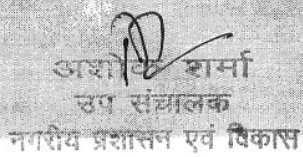 अशोक शर्मा
उप संचालक
नगरीय प्रशासन एवं विकास